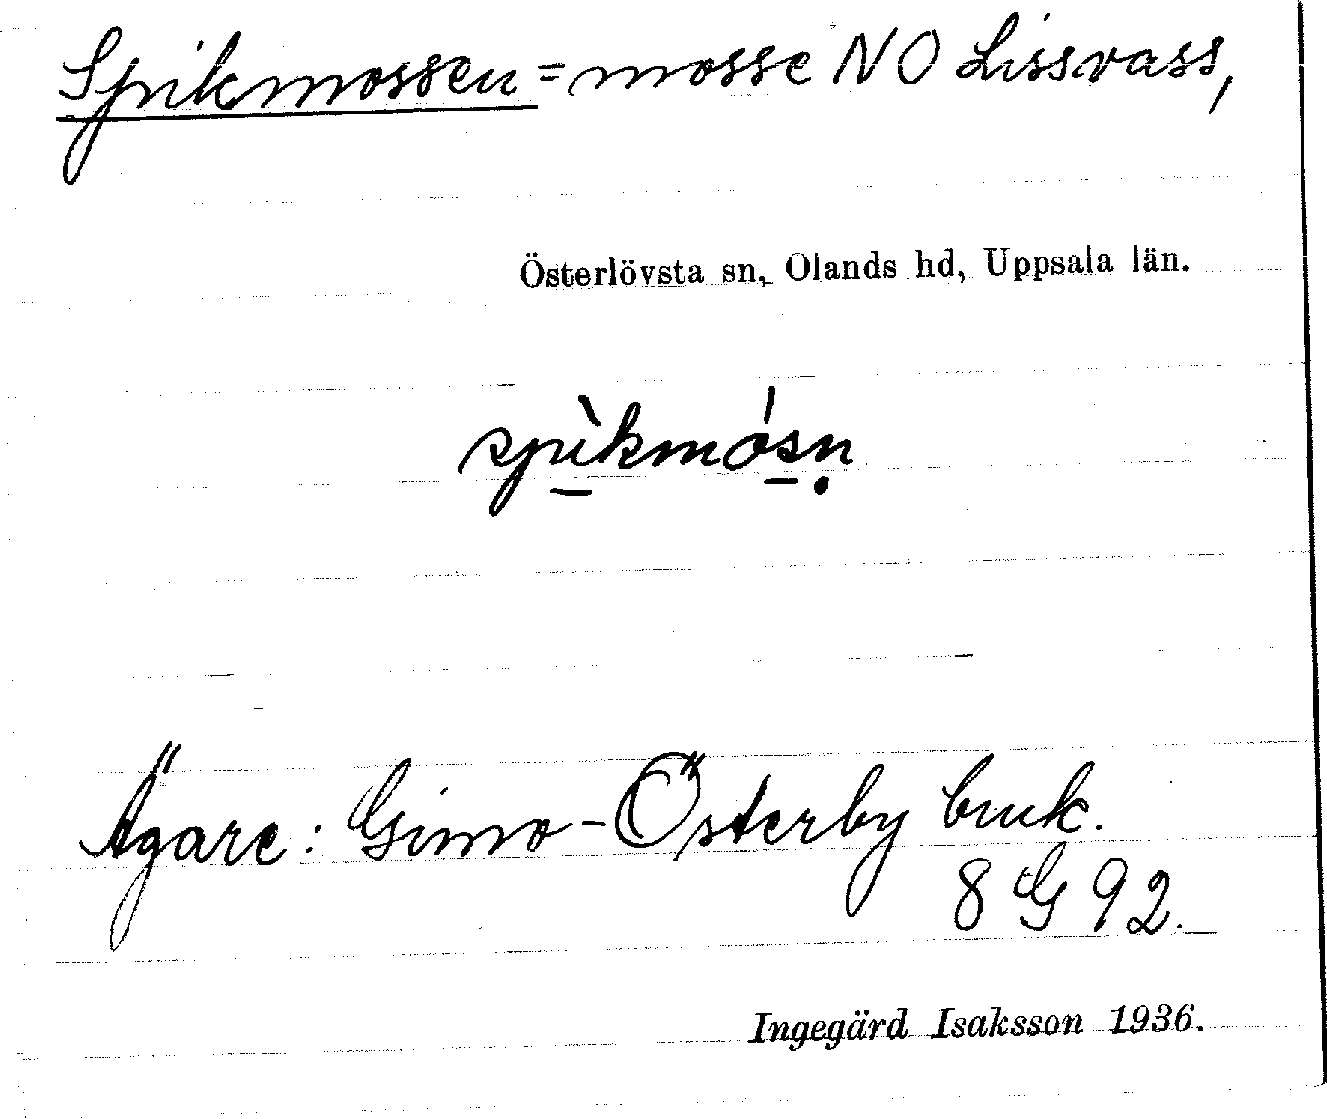 Spikmossen = mosse NO Lissvass,
Österlövsta sn, Olands hd, Uppsala län.
spìkmósṇ
Ägare: Gimo-Österby bruk.
8 G 92.
Ingegärd Isaksson 1936.